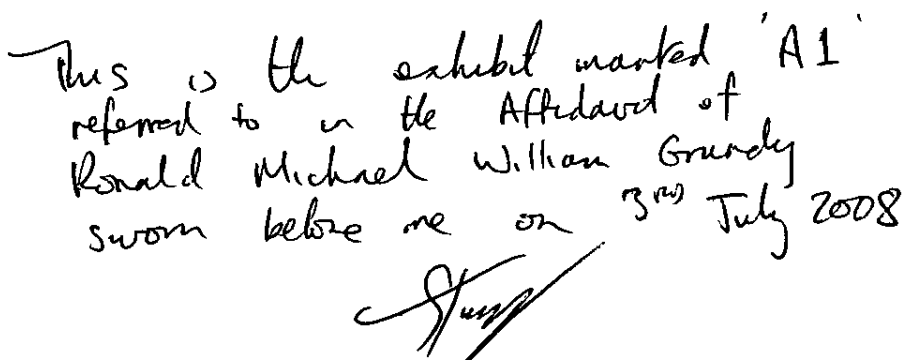 This is the exhibit marked 'A1'
referred to in the Affidavit of
Ronald Michael William Grundy
sworn before me on 3RD July 2008